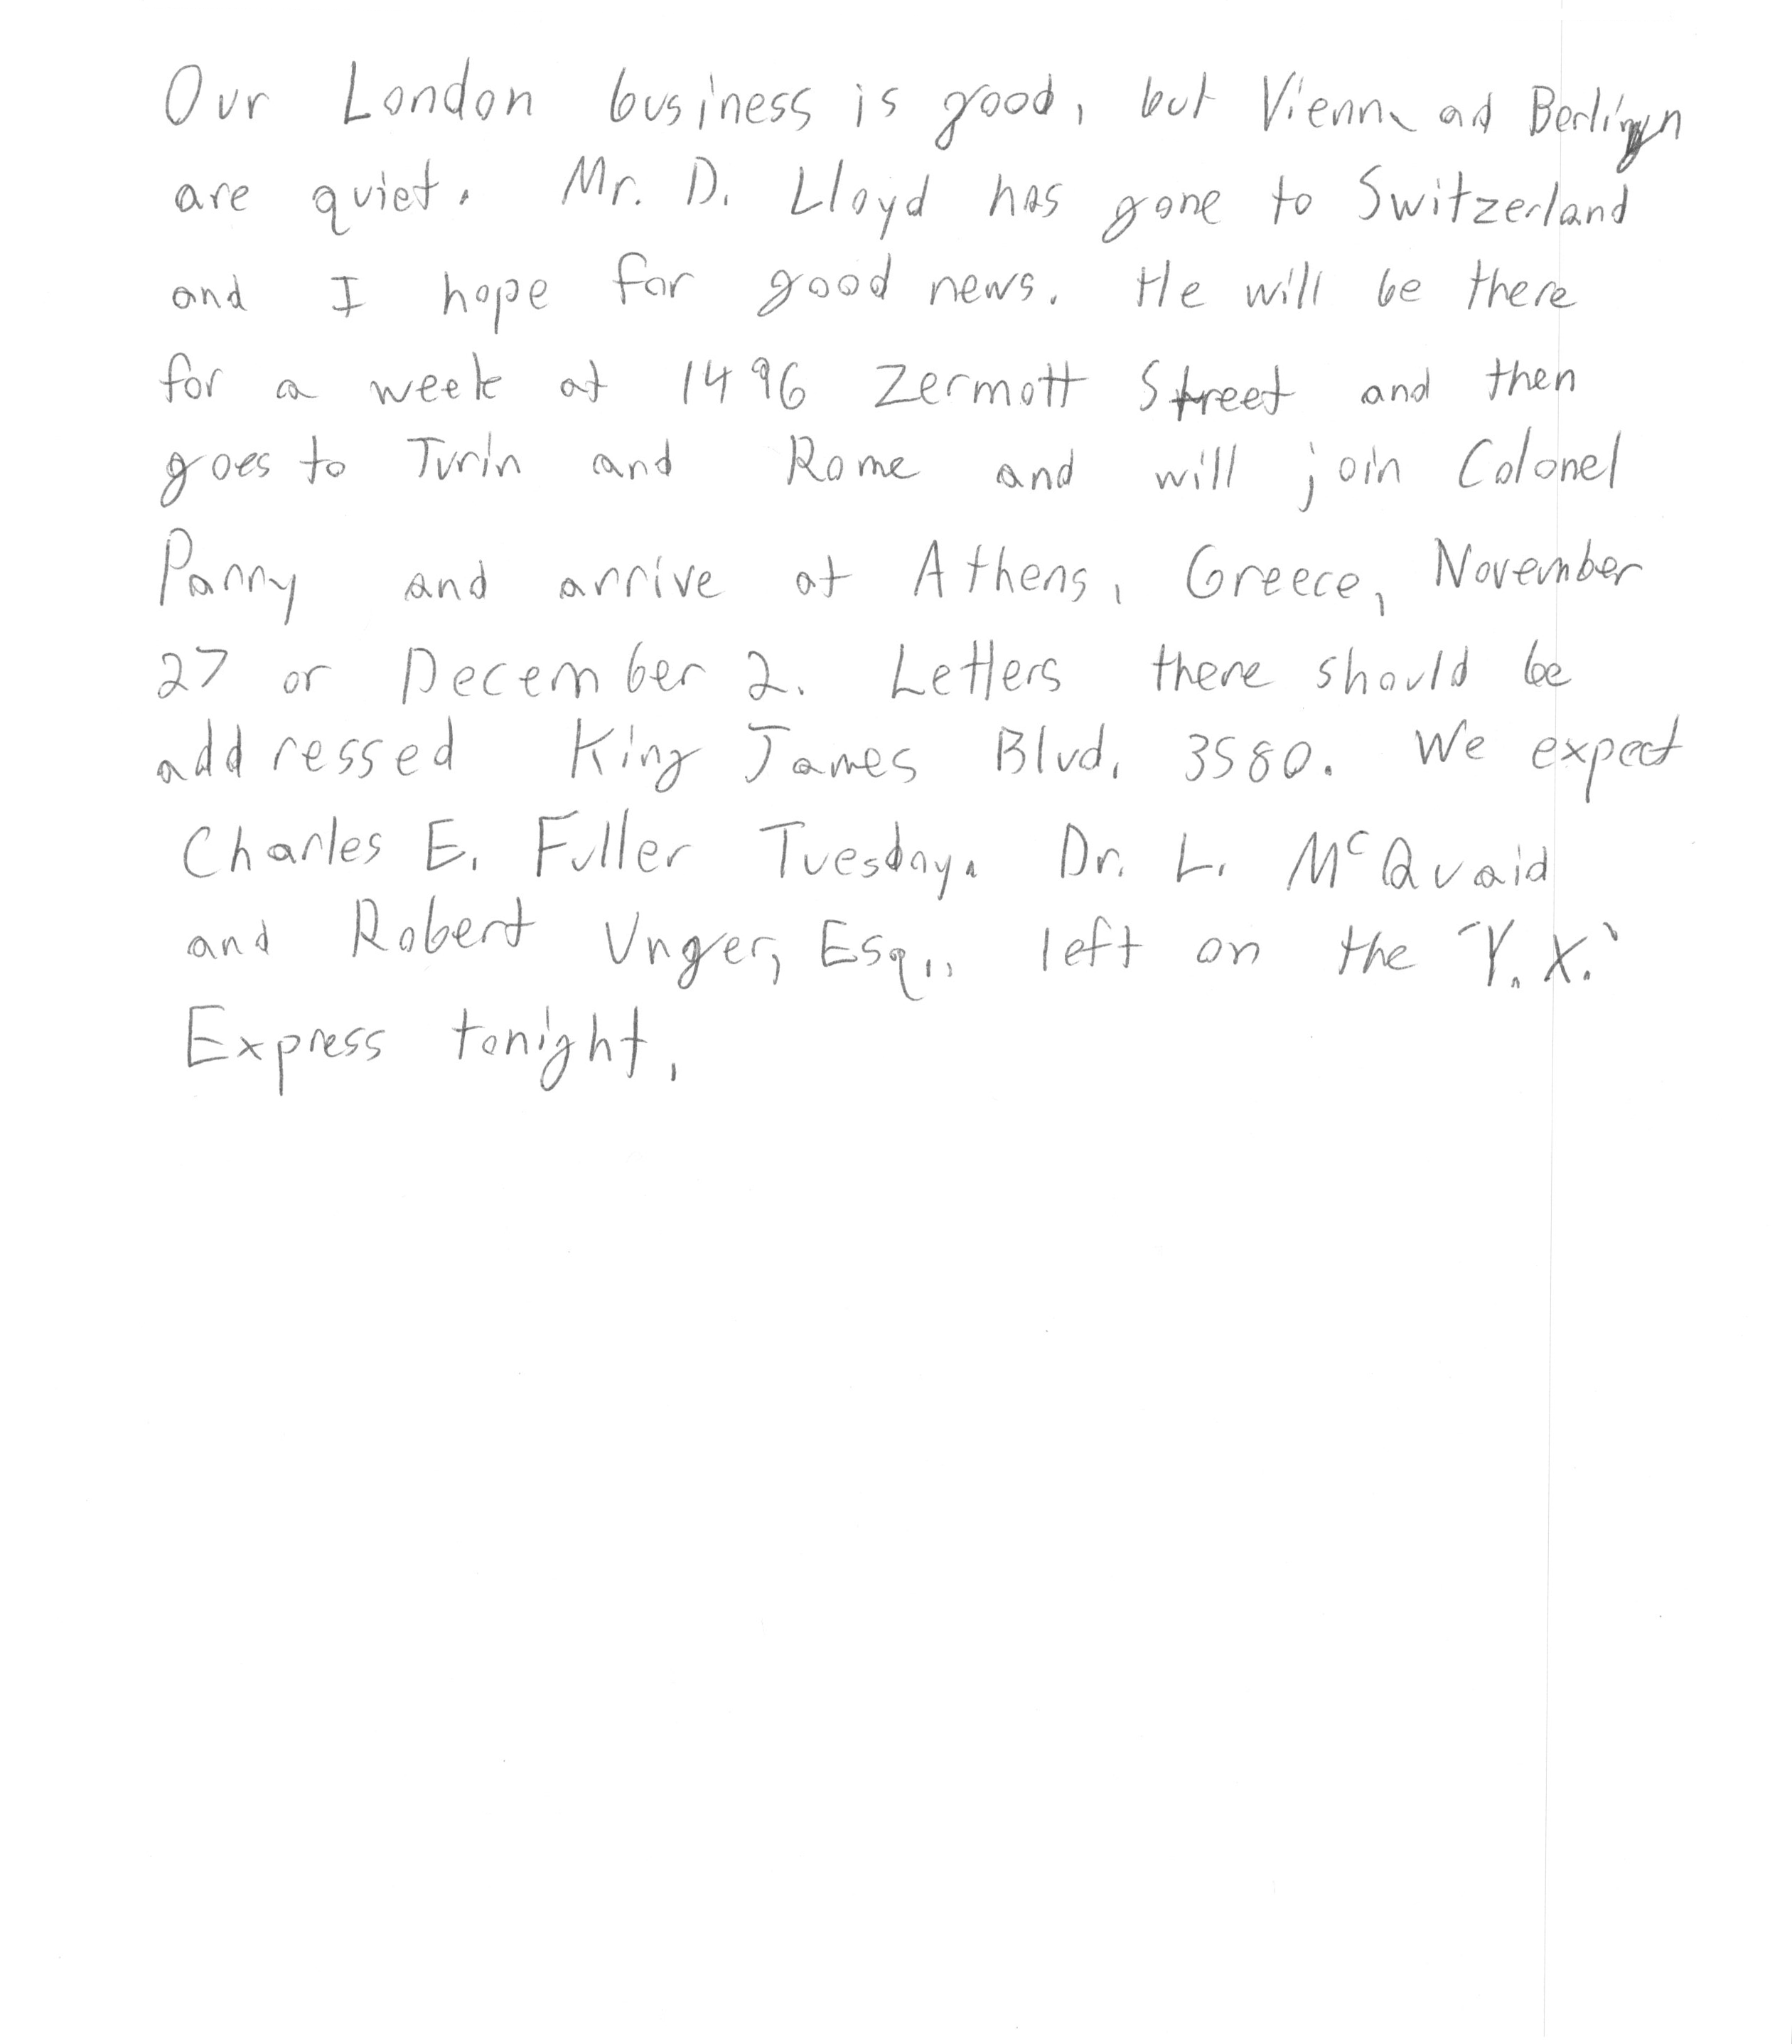 Our London business is good, but Vienna and Berlin
are quiet. Mr. D. Lloyd has gone to Switzerland
and I hope for good news. He will be there
for a week at 1496 Zermott Street and then
goes to Turin and Rome and will join Colonel
Parry and arrive at Athens, Greece, November
27 or December 2. Letters there should be
addressed King James Blvd. 3580. We expect
Charles E. Fuller Tuesday. Dr. L. McQuaid
and Robert Unger, Esq., left on the "Y.X."
Express tonight.